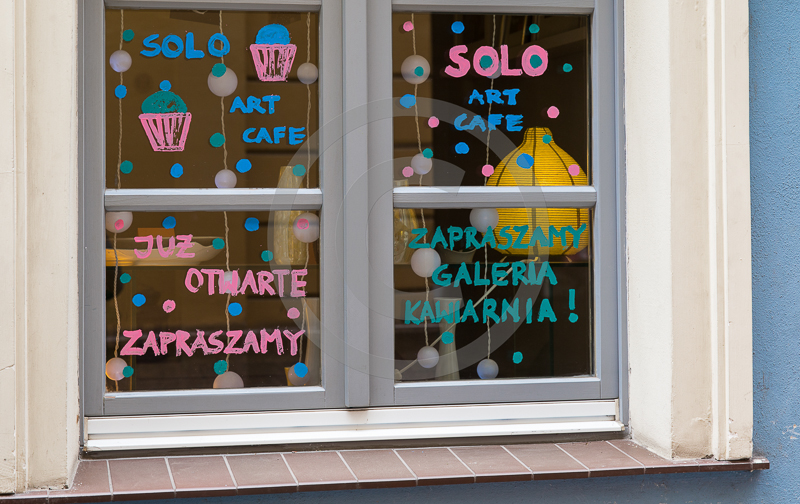 SOLO
ART
CAFE
JUŻ
OTWARTE
ZAPRASZAMY
SOLO
ART
CAFE
ZAPRASZAMY
GALERIA
KAWIARNIA!